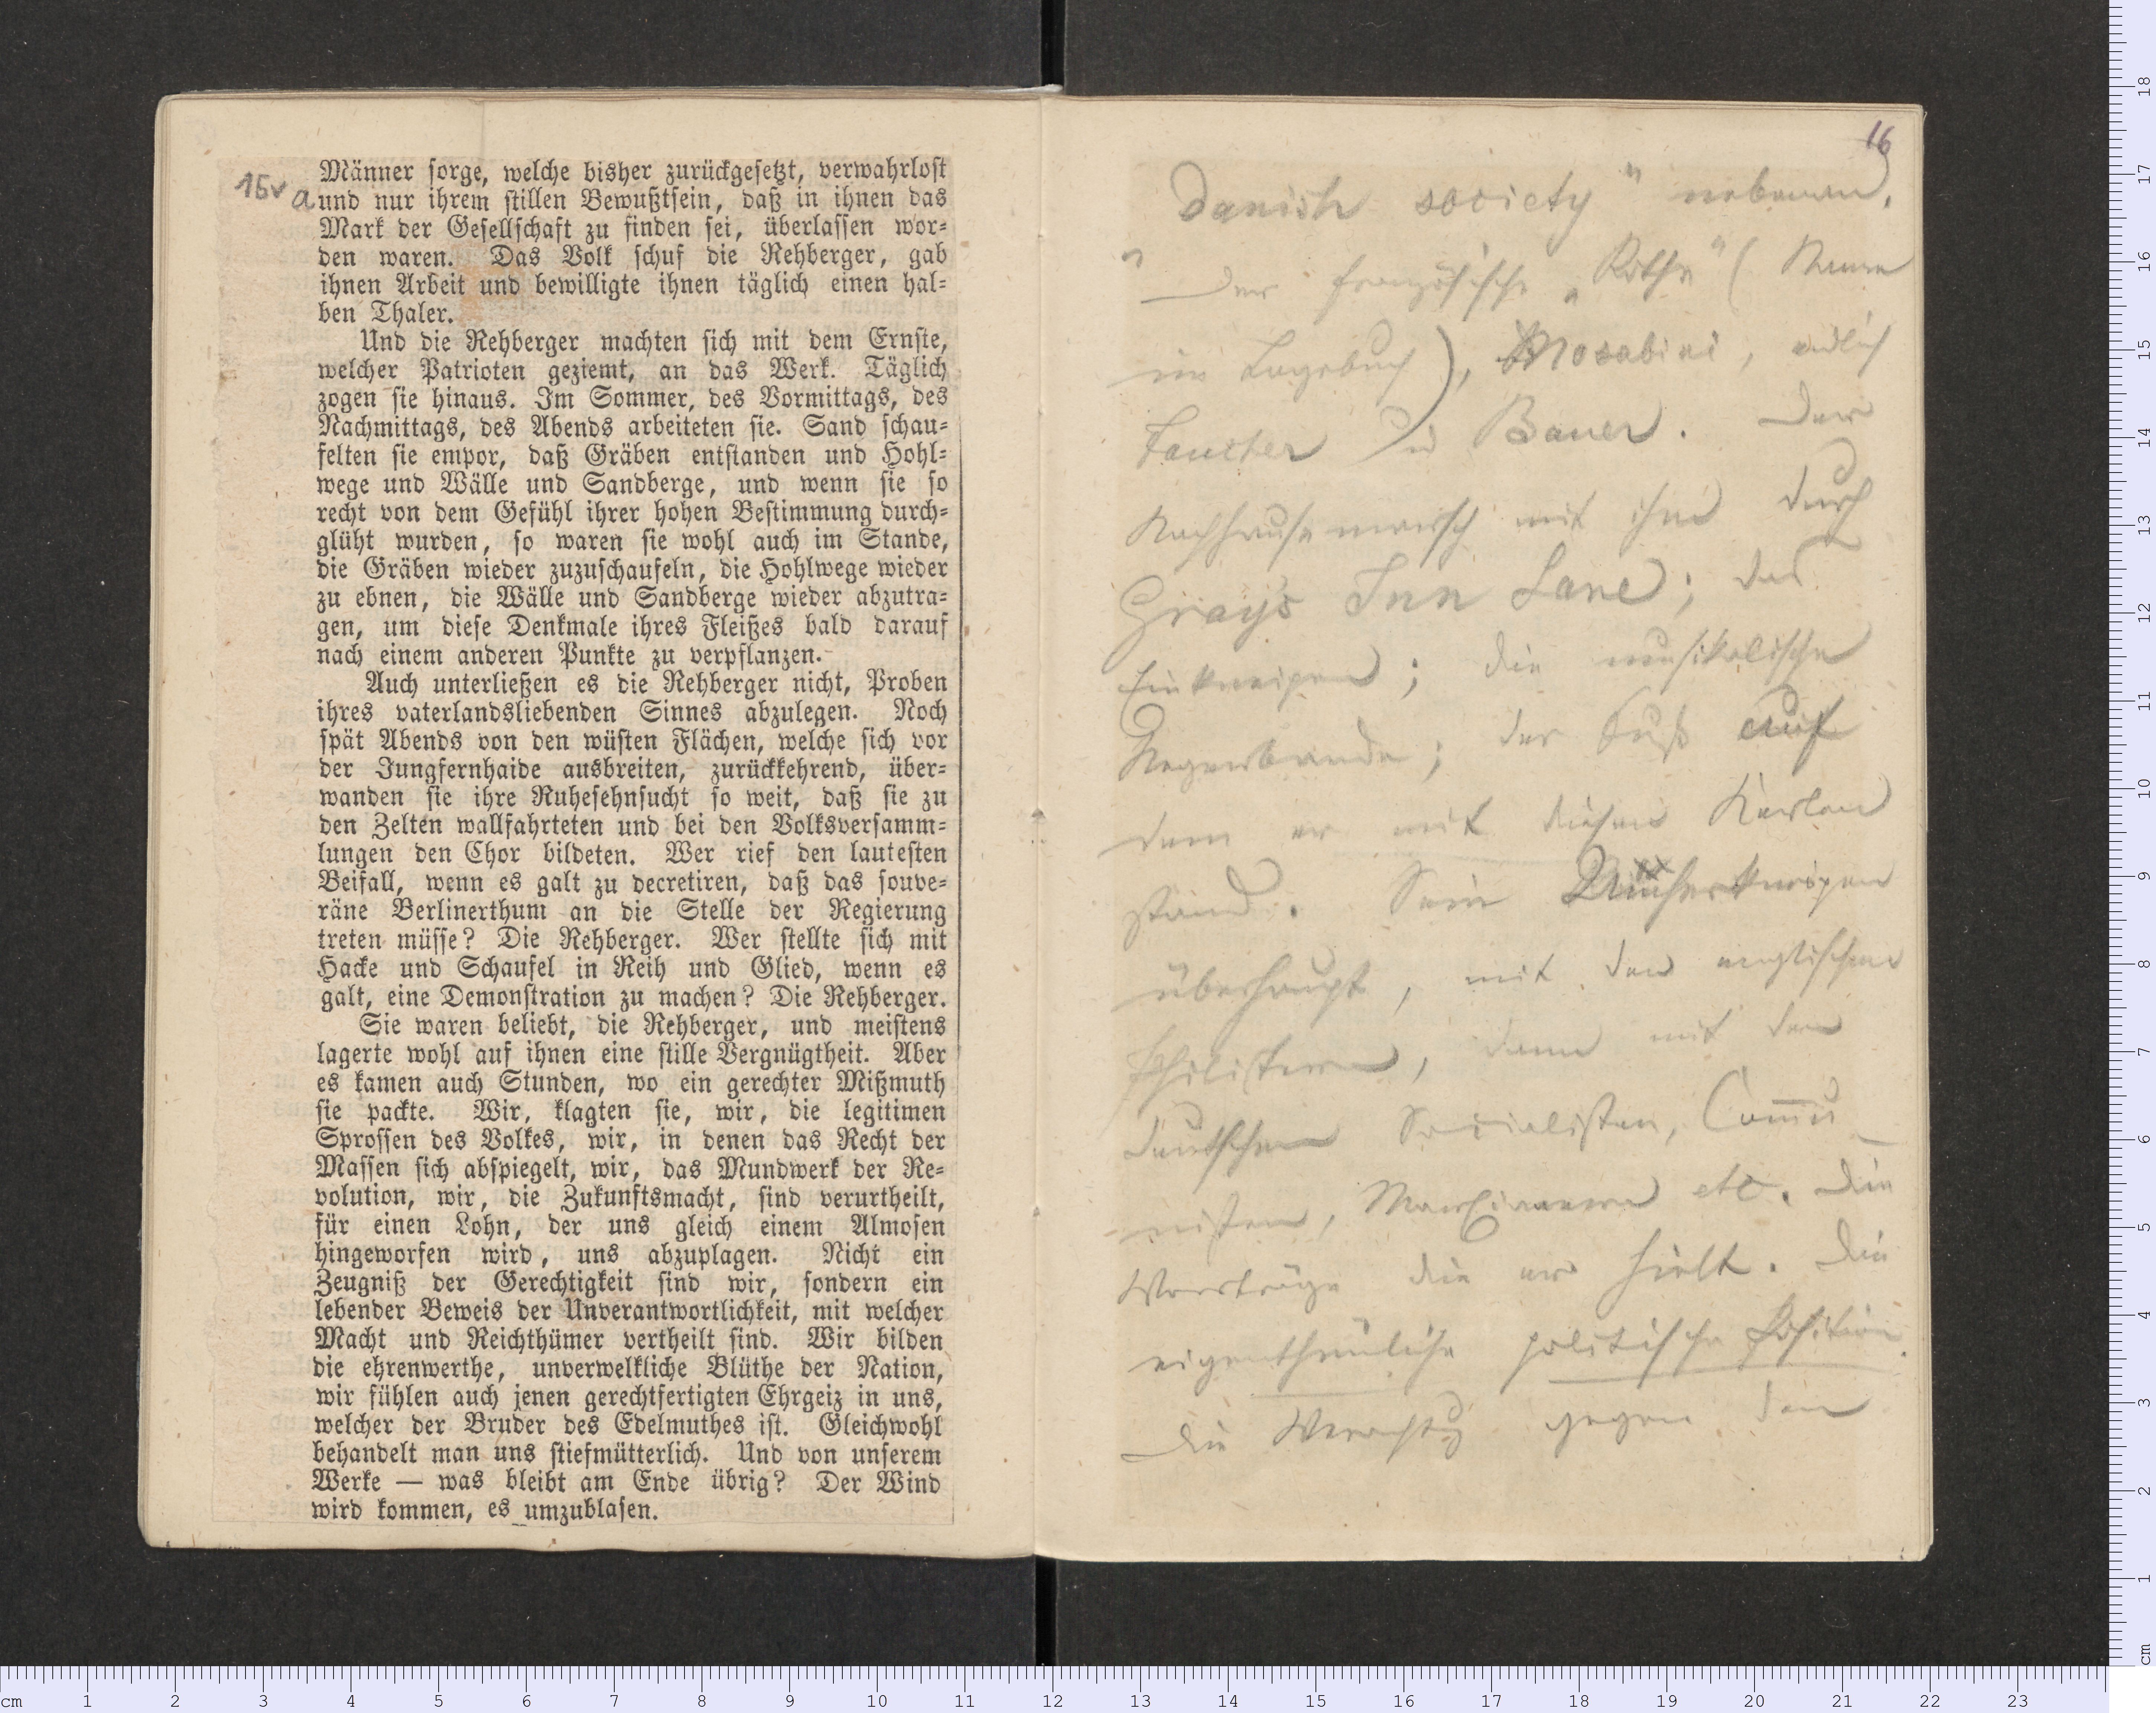 15v a
Männer sorge, welche bisher zurückgesetzt, verwahrlost
und nur ihrem stillen Bewußtsein, daß in ihnen das
Mark der Gesellschaft zu finden sei, überlassen wor-
den waren. Das Volk schuf die Rehberger, gab
ihnen Arbeit und bewilligte ihnen täglich einen hal-
ben Thaler.
Und die Rehberger machten sich mit dem Ernste,
welcher Patrioten geziemt, an das Werk. Täglich
zogen sie hinaus. Im Sommer, des Vormittags, des
Nachmittags, des Abends arbeiteten sie. Sand schau-
felten sie empor, daß Gräben entstanden und Hohl-
wege und Wälle und Sandberge, und wenn sie so
recht von dem Gefühl ihrer hohen Bestimmung durch-
glüht wurden, so waren sie wohl auch im Stande,
die Gräben wieder zuzuschaufeln, die Hohlwege wieder
zu ebnen, die Wälle und Sandberge wieder abzutra-
gen, um diese Denkmale ihres Fleißes bald darauf
nach einem anderen Punkte zu verpflanzen.
Auch unterließen es die Rehberger nicht, Proben
ihres vaterlandsliebenden Sinnes abzulegen. Noch
spät Abends von den wüsten Flächen, welche sich vor
der Jungfernhaide ausbreiten, zurückkehrend, über-
wanden sie ihre Ruhesehnsucht so weit, daß sie zu
den Zelten wallfahrteten und bei den Volksversamm-
lungen den Chor bildeten. Wer rief den lautesten
Beifall, wenn es galt zu decretiren, daß das souve-
räne Berlinerthum an die Stelle der Regierung
treten müsse? Die Rehberger. Wer stellte sich mit
Hacke und Schaufel in Reih und Glied, wenn es
galt, eine Demonstration zu machen? Die Rehberger.
Sie waren beliebt, die Rehberger, und meistens
lagerte wohl auf ihnen eine stille Vergnügtheit. Aber
es kamen auch Stunden, wo ein gerechter Mißmuth
sie packte. Wir, klagten sie, wir, die legitimen
Sprossen des Volkes, wir, in denen das Recht der
Massen sich abspiegelt, wir, das Mundwerk der Re-
volution, wir, die Zukunftsmacht, sind verurtheilt,
für einen Lohn, der uns gleich einem Almosen
hingeworfen wird, uns abzuplagen. Nicht ein
Zeugniß der Gerechtigkeit sind wir, sondern ein
lebender Beweis der Unverantwortlichkeit, mit welcher
Macht und Reichthümer vertheilt sind. Wir bilden
die ehrenwerthe, unverwelkliche Blüthe der Nation,
wir fühlen auch jenen gerechtfertigten Ehrgeiz in uns,
welcher der Bruder des Edelmuthes ist. Gleichwohl
behandelt man uns stiefmütterlich. Und von unserem
Werke — was bleibt am Ende übrig? Der Wind
wird kommen, es umzublasen.
16
Danish society" nebenan.
Der französische „Rothe" (Name
im Tagebuch), Mosabini, endlich
Faucher u Bauer. Der
Nachhausemarsch mit ihm durch
Grays Inn Lane; das
Einkneipen; die musikalische
Negerbande; der Fuß auf
dem er mit diesen Kerlen
stand. Sein Umherkneipen
überhaupt, mit den englischen
Philistern, dann mit den
deutschen Socialisten, Commu-
nisten, Marxianern etc. Die
Vorträge die er hielt. Die
eigenthümliche politische Position.
Die Verachtg gegen den